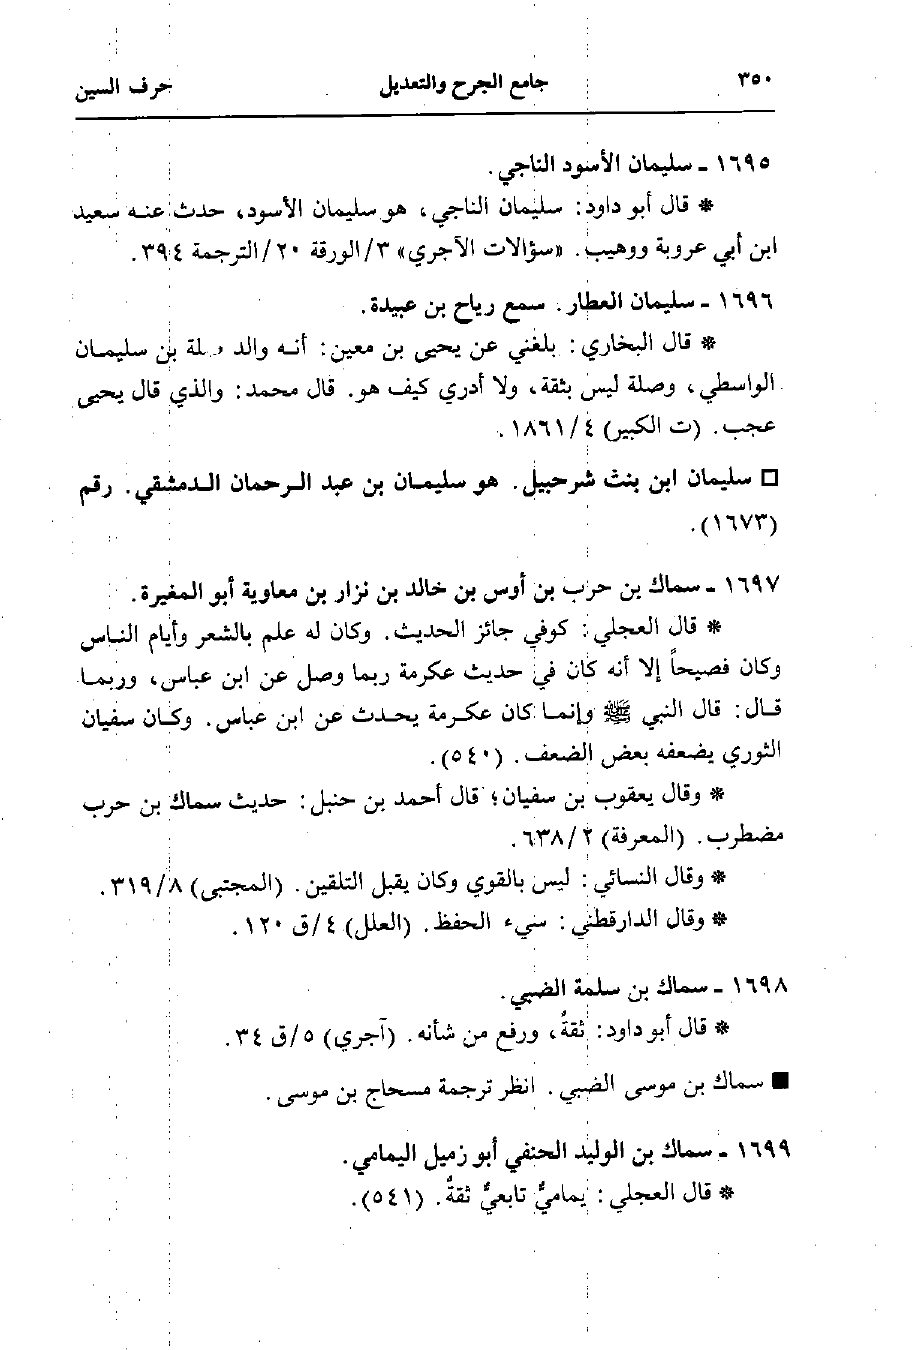 ٣٥٠ جامع الجرح والتعديل حرف السين
١٦٩٥ ـ سليمان الأسود الناجي.
* قال أبو داود: سليمان الناجي، هو سليمان الأسود، حدث عنه سعيد
ابن أبي عروبة ووهيب. «سؤالات الآجري» ٣/الورقة ٢٠/الترجمة ٣٩٤.
١٦٩٦ ـ سليمان العطار. سمع رياح بن عبيدة.
* قال البخاري: بلغني عن يحيى بن معين: أنه والد بن سليمان
الواسطي، وصلة ليس بثقة، ولا أدري كيف هو. قال محمد: والذي قال يحيى
عجب. (ت الكبير) ١٨٦١/٤.
□ سليمان ابن بنت شرحبيل. هو سليمان بن عبد الرحمان الدمشقي. رقم
(١٦٧٣).
١٦٩٧ ـ سماك بن حرب بن أوس بن خالد بن نزار بن معاوية أبو المغيرة.
* قال العجلي: كوفي جائز الحديث. وكان له علم بالشعر وأيام الناس
وكان فصيحاً إلا أنه كان في حديث عكرمة ربما وصل عن ابن عباس، وربما
قال: قال النبي ﷺ وإنما كان عكرمة يحدث عن ابن عباس. وكان سفيان
الثوري يضعفه بعض الضعف. (٥٤٠).
* وقال يعقوب بن سفيان؛ قال أحمد بن حنبل: حديث سماك بن حرب
مضطرب. (المعرفة) ٦٣٨/٢.
* وقال النسائي: ليس بالقوي وكان يقبل التلقين. (المجتبى) ٣١٩/٨.
* وقال الدارقطني: سيء الحفظ. (العلل) ٤/ق ١٢٠.
١٦٩٨ ـ سماك بن سلمة الضبي.
* قال أبو داود: ثقةٌ، ورفع من شأنه. (آجري) ٥/ق ٣٤.
■ سماك بن موسى الضبي. انظر ترجمة مسحاج بن موسى.
١٦٩٩ ـ سماك بن الوليد الحنفي أبو زميل اليمامي.
* قال العجلي: يماميٌّ تابعيٌّ ثقةٌ. (٥٤١).